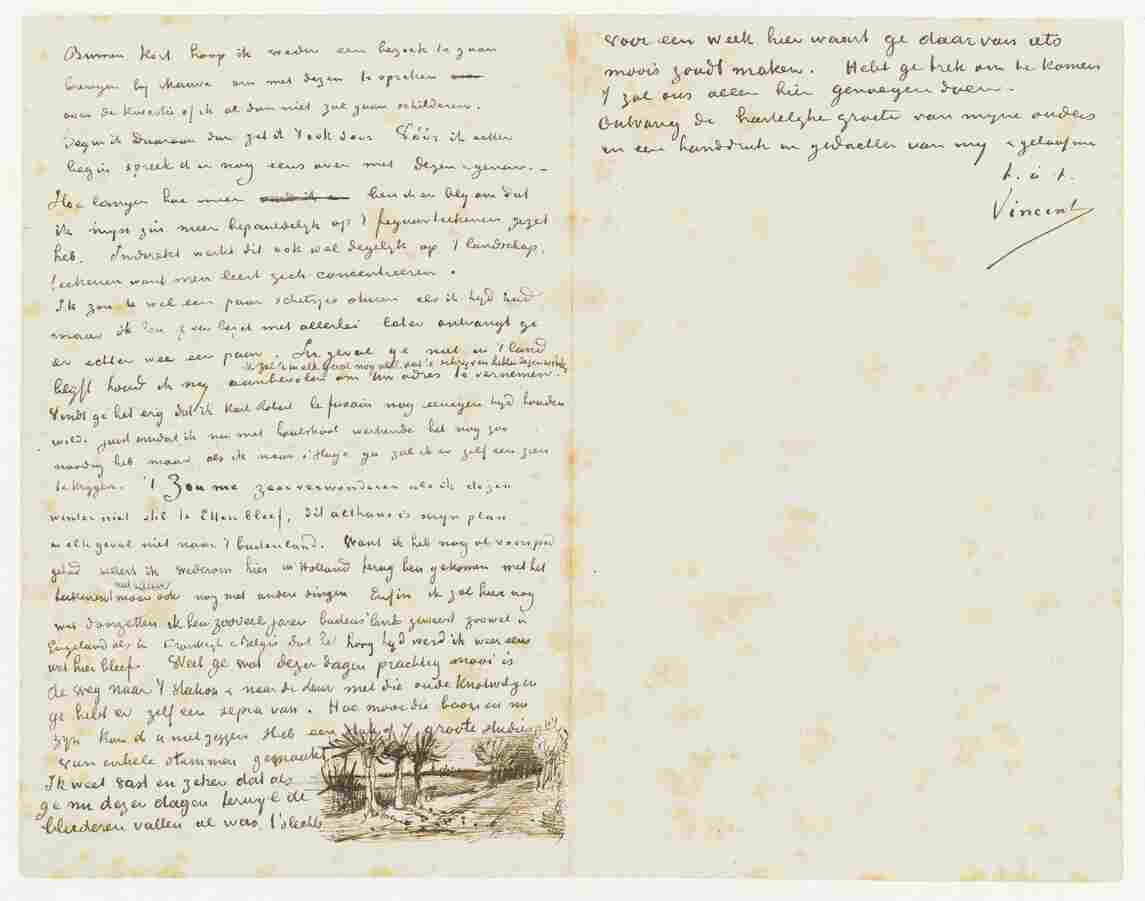 Binnen kort hoop ik weder een bezoek te gaan
brengen by Mauve om met dezen te spreken
over de kwestie of ik al dan niet zal gaan schilderen.
Begin ik daaraan dan zet ik 't ook door. Vóór ik echter
begin spreek ik er nog eens over met dezen & genen. –
Hoe langer hoe meer ben ik er bly om dat
ik myn zin meer bepaaldelyk op 't figuurteekenen gezet
heb. Indirekt werkt dit ook wel degelyk op 't landschap
teekenen want men leert zich concentreeren.
Ik zou U wel een paar schetsjes sturen als ik tyd had
maar ik ben zeer bezet met allerlei later ontvangt ge
er echter wel een paar. In geval ge niet in 't land
ik zal U in elk geval nog wel eens schryven
blyft houd ik my aanbevolen om Uw adres te vernemen.
Vindt ge het erg dat ik Karl Robert le fusain nog eenigen tyd houden
wilde juist omdat ik nu met houtskool werkende het nog zoo
noodig heb maar als ik naar s'Hage ga zal ik er zelf een zien
te krygen. 't Zou me zeer verwonderen als ik dezen
winter niet stil te Etten bleef, dit althans is myn plan
in elk geval niet naar 't buitenland. Want ik heb nog al voorspoed
gehad sedert ik wederom hier in Holland terug ben gekomen met het
niet alleen
teekenen maar ook nog met andere dingen. Enfin ik zal hier nog
wat doorzetten ik ben zooveel jaren buiten'lands geweest zoowel in
Engeland als in Frankryk & Belgie dat het hoog tyd werd ik weer eens
wat hier bleef. Weet ge wat dezer dagen prachtig mooi is
de weg naar 't station & naar de Leur met die oude knotwilgen
ge hebt er zelf een sepia van. Hoe mooi die boomen nu
zyn kan ik u niet zeggen. Heb een stuk of 7 groote studies
van enkele stammen gemaakt
Ik weet vast en zeker dat als
ge nu dezer dagen terwyl de
bladeren vallen al was 't slechts
voor een week hier waart ge daar van iets
moois zoudt maken. Hebt ge trek om te komen
't zal ons allen hier genoegen doen.
Ontvang de hartelyke groete van myne ouders
en een handdruk in gedachten van my & geloof me
t. à t.
Vincent